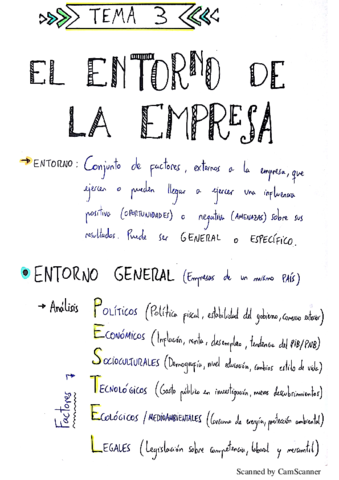 TEMA 3
EL ENTORNO DE
LA EMPRESA
→ ENTORNO: Conjunto de factores, externos a la empresa, que
ejercen o pueden llegar a ejercer una influencia
positiva (OPORTUNIDADES) o negativa (AMENAZAS) sobre sus
resultados. Puede ser GENERAL o ESPECÍFICO.
ENTORNO GENERAL (Empresas de un mismo PAÍS)
→ Análisis POLÍTICOS (Política fiscal, estabilidad del gobierno, comercio exterior)
ECONÓMICOS (Inflación, renta, desempleo, tendencia del PIB/PNB)
SOCIOCULTURALES (Demografía, nivel educación, cambios estilo de vida)
Factores → TECNOLÓGICOS (Gasto público en investigación, nuevos descubrimientos)
ECOLÓGICOS / MEDIOAMBIENTALES (Consumo de energía, protección ambiental)
LEGALES (Legislación sobre competencia, laboral y mercantil)
Scanned by CamScanner